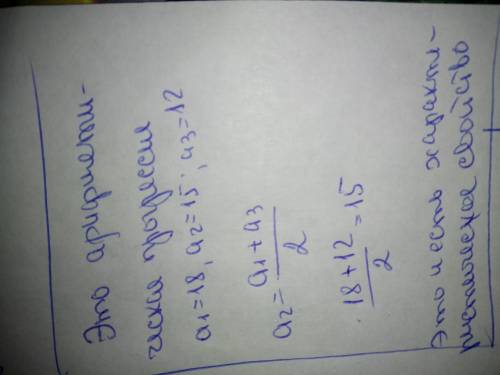 Это арифмети-
ческая прогрессия
a1=18, a2=15, a3=12
a2 = a1+a3 / 2
18+12 / 2 = 15
Это и есть характе-
ристическое свойство